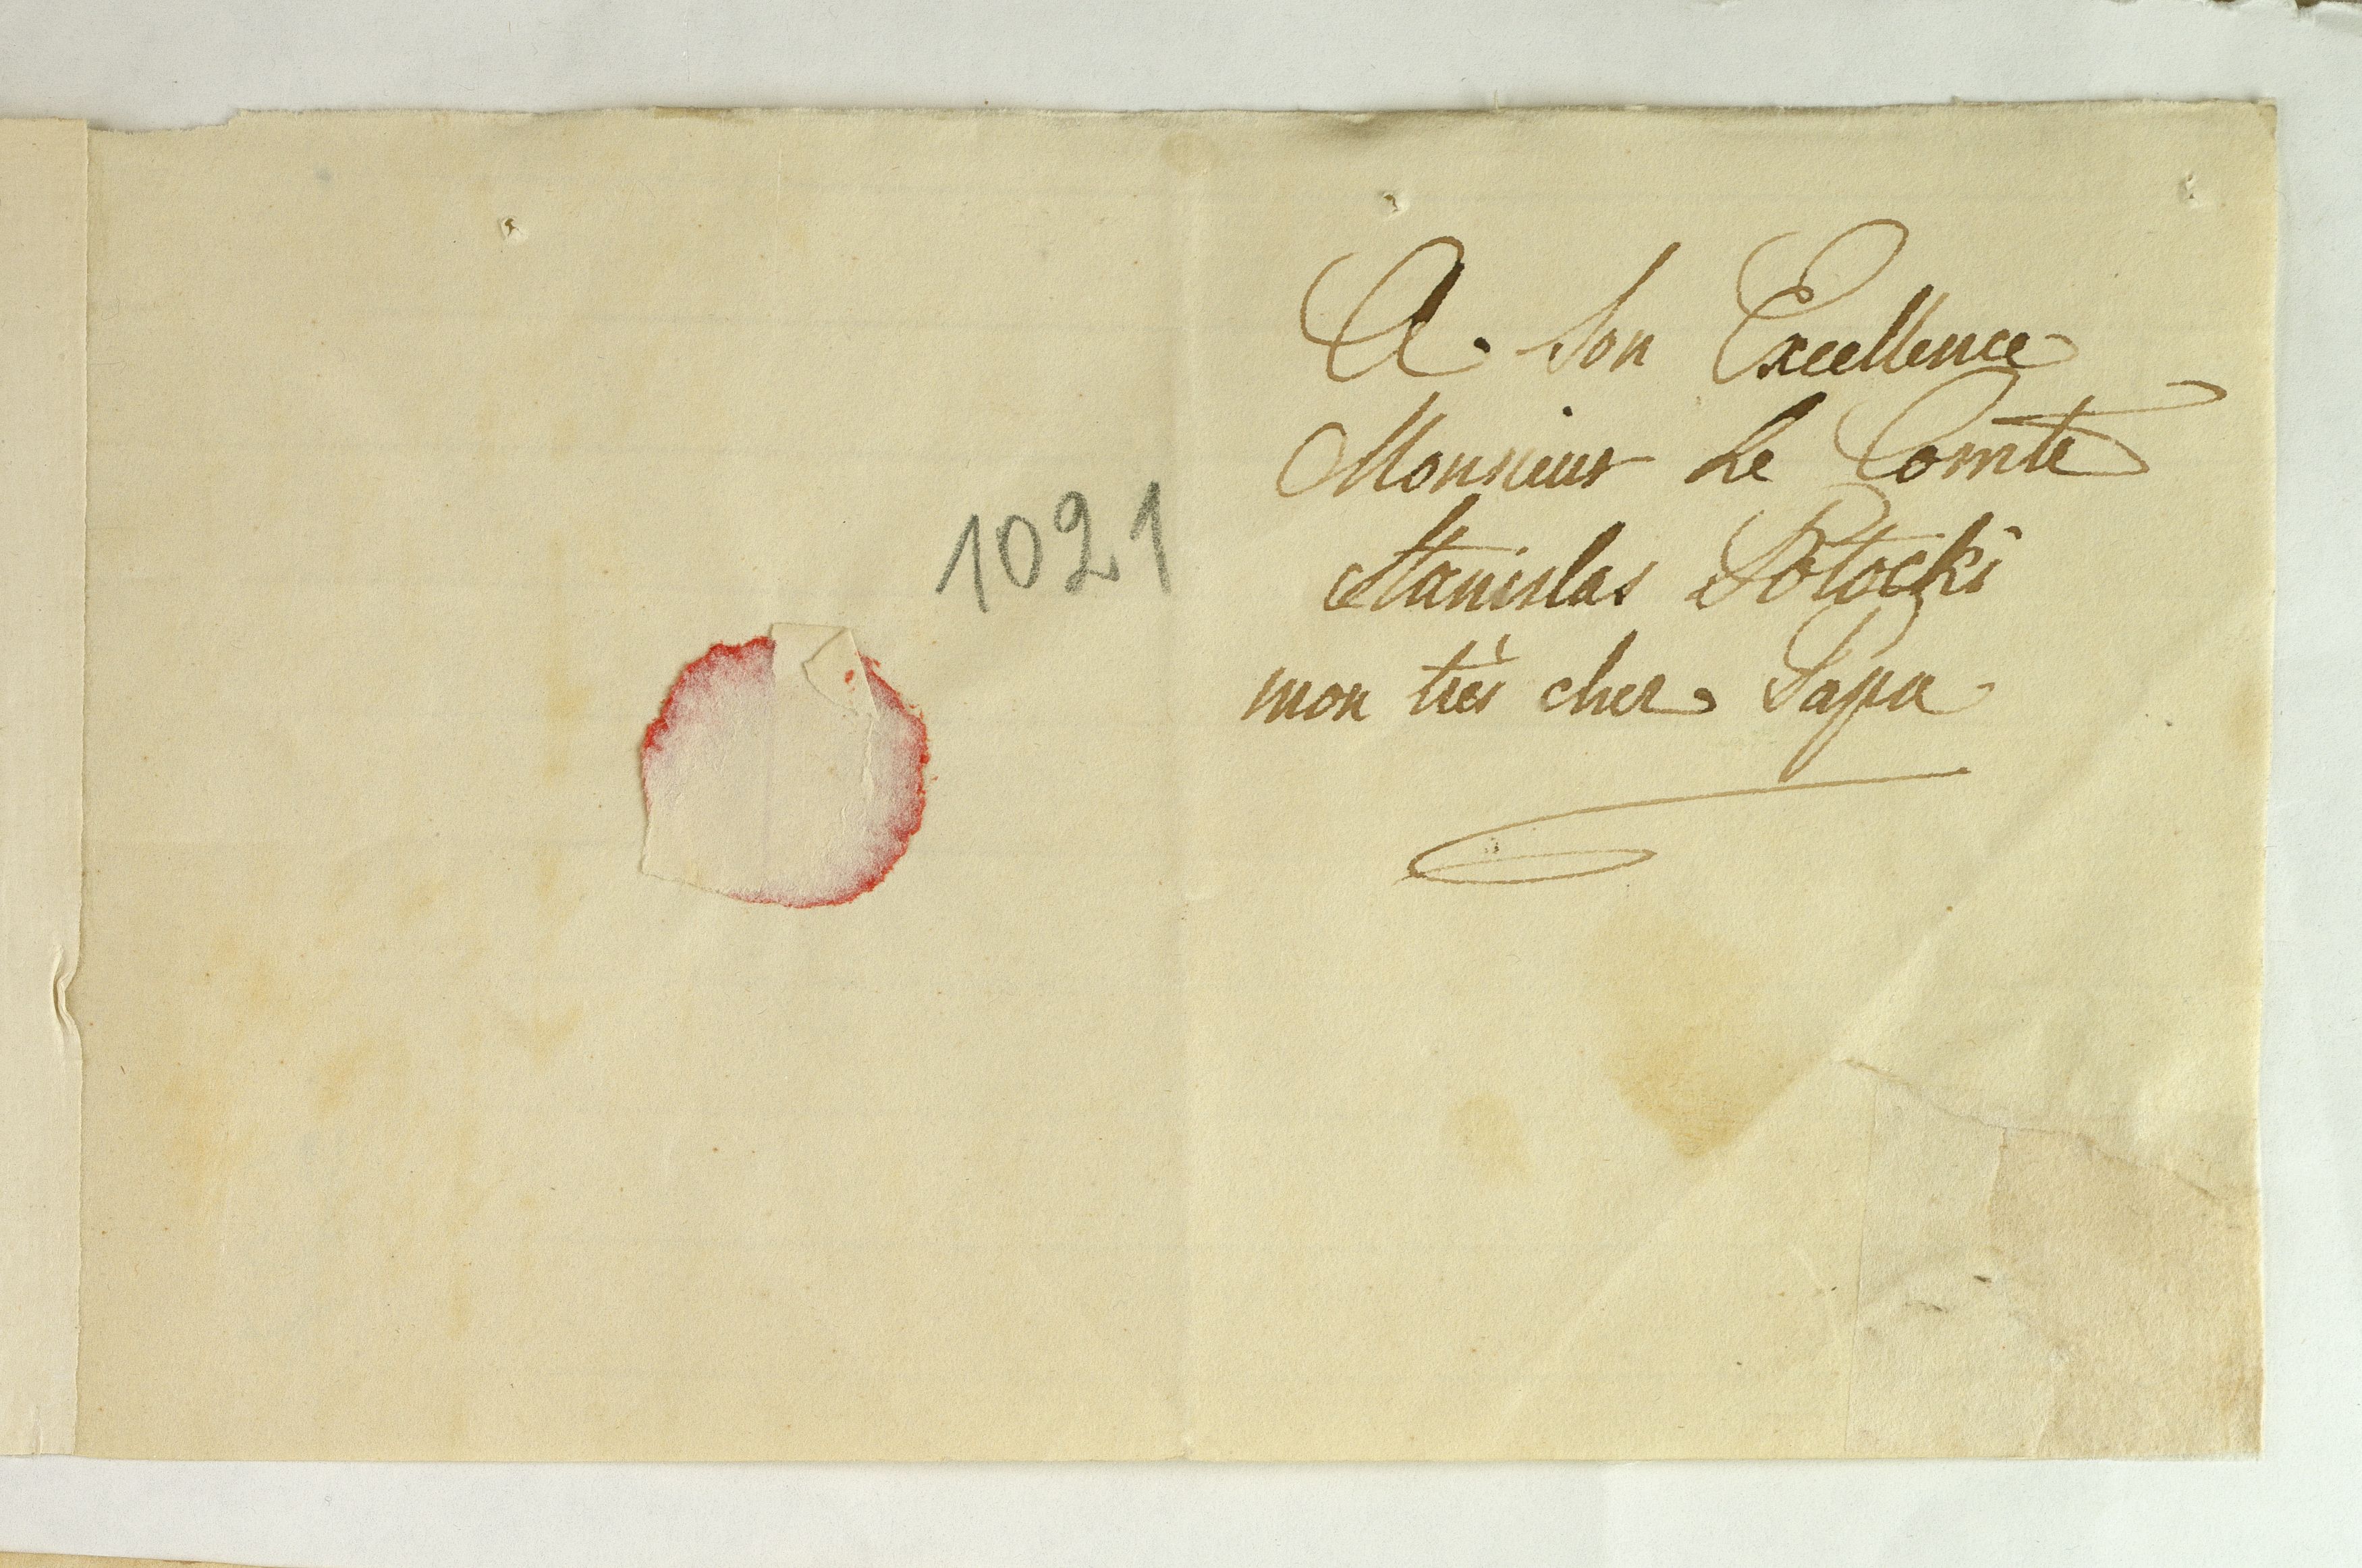 1021
A Son Excellence
Monsieur Le Comte
Stanislas Potocki
mon très cher Papa